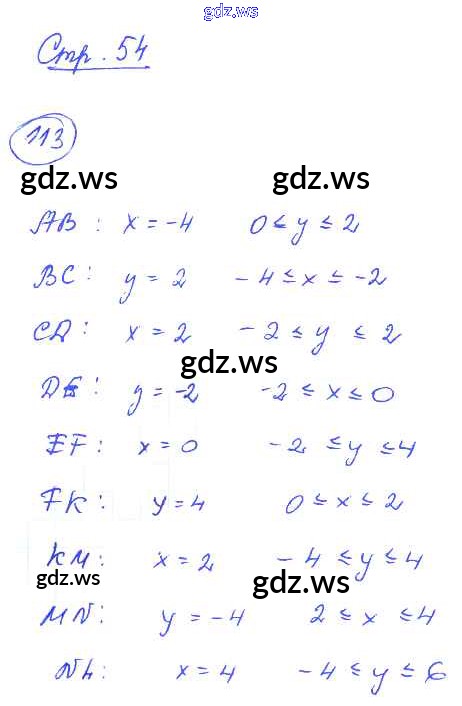 gdz.ws
Стр. 54
113
gdz.ws gdz.ws
AB : x = -4 0 ≤ y ≤ 2
BC : y = 2 -4 ≤ x ≤ -2
CD : x = 2 -2 ≤ y ≤ 2
gdz.ws
DE : y = -2 -2 ≤ x ≤ 0
EF : x = 0 -2 ≤ y ≤ 4
FK : y = 4 0 ≤ x ≤ 2
KM : x = 2 -4 ≤ y ≤ 4
gdz.ws gdz.ws
MN : y = -4 2 ≤ x ≤ 4
NL : x = 4 -4 ≤ y ≤ 6